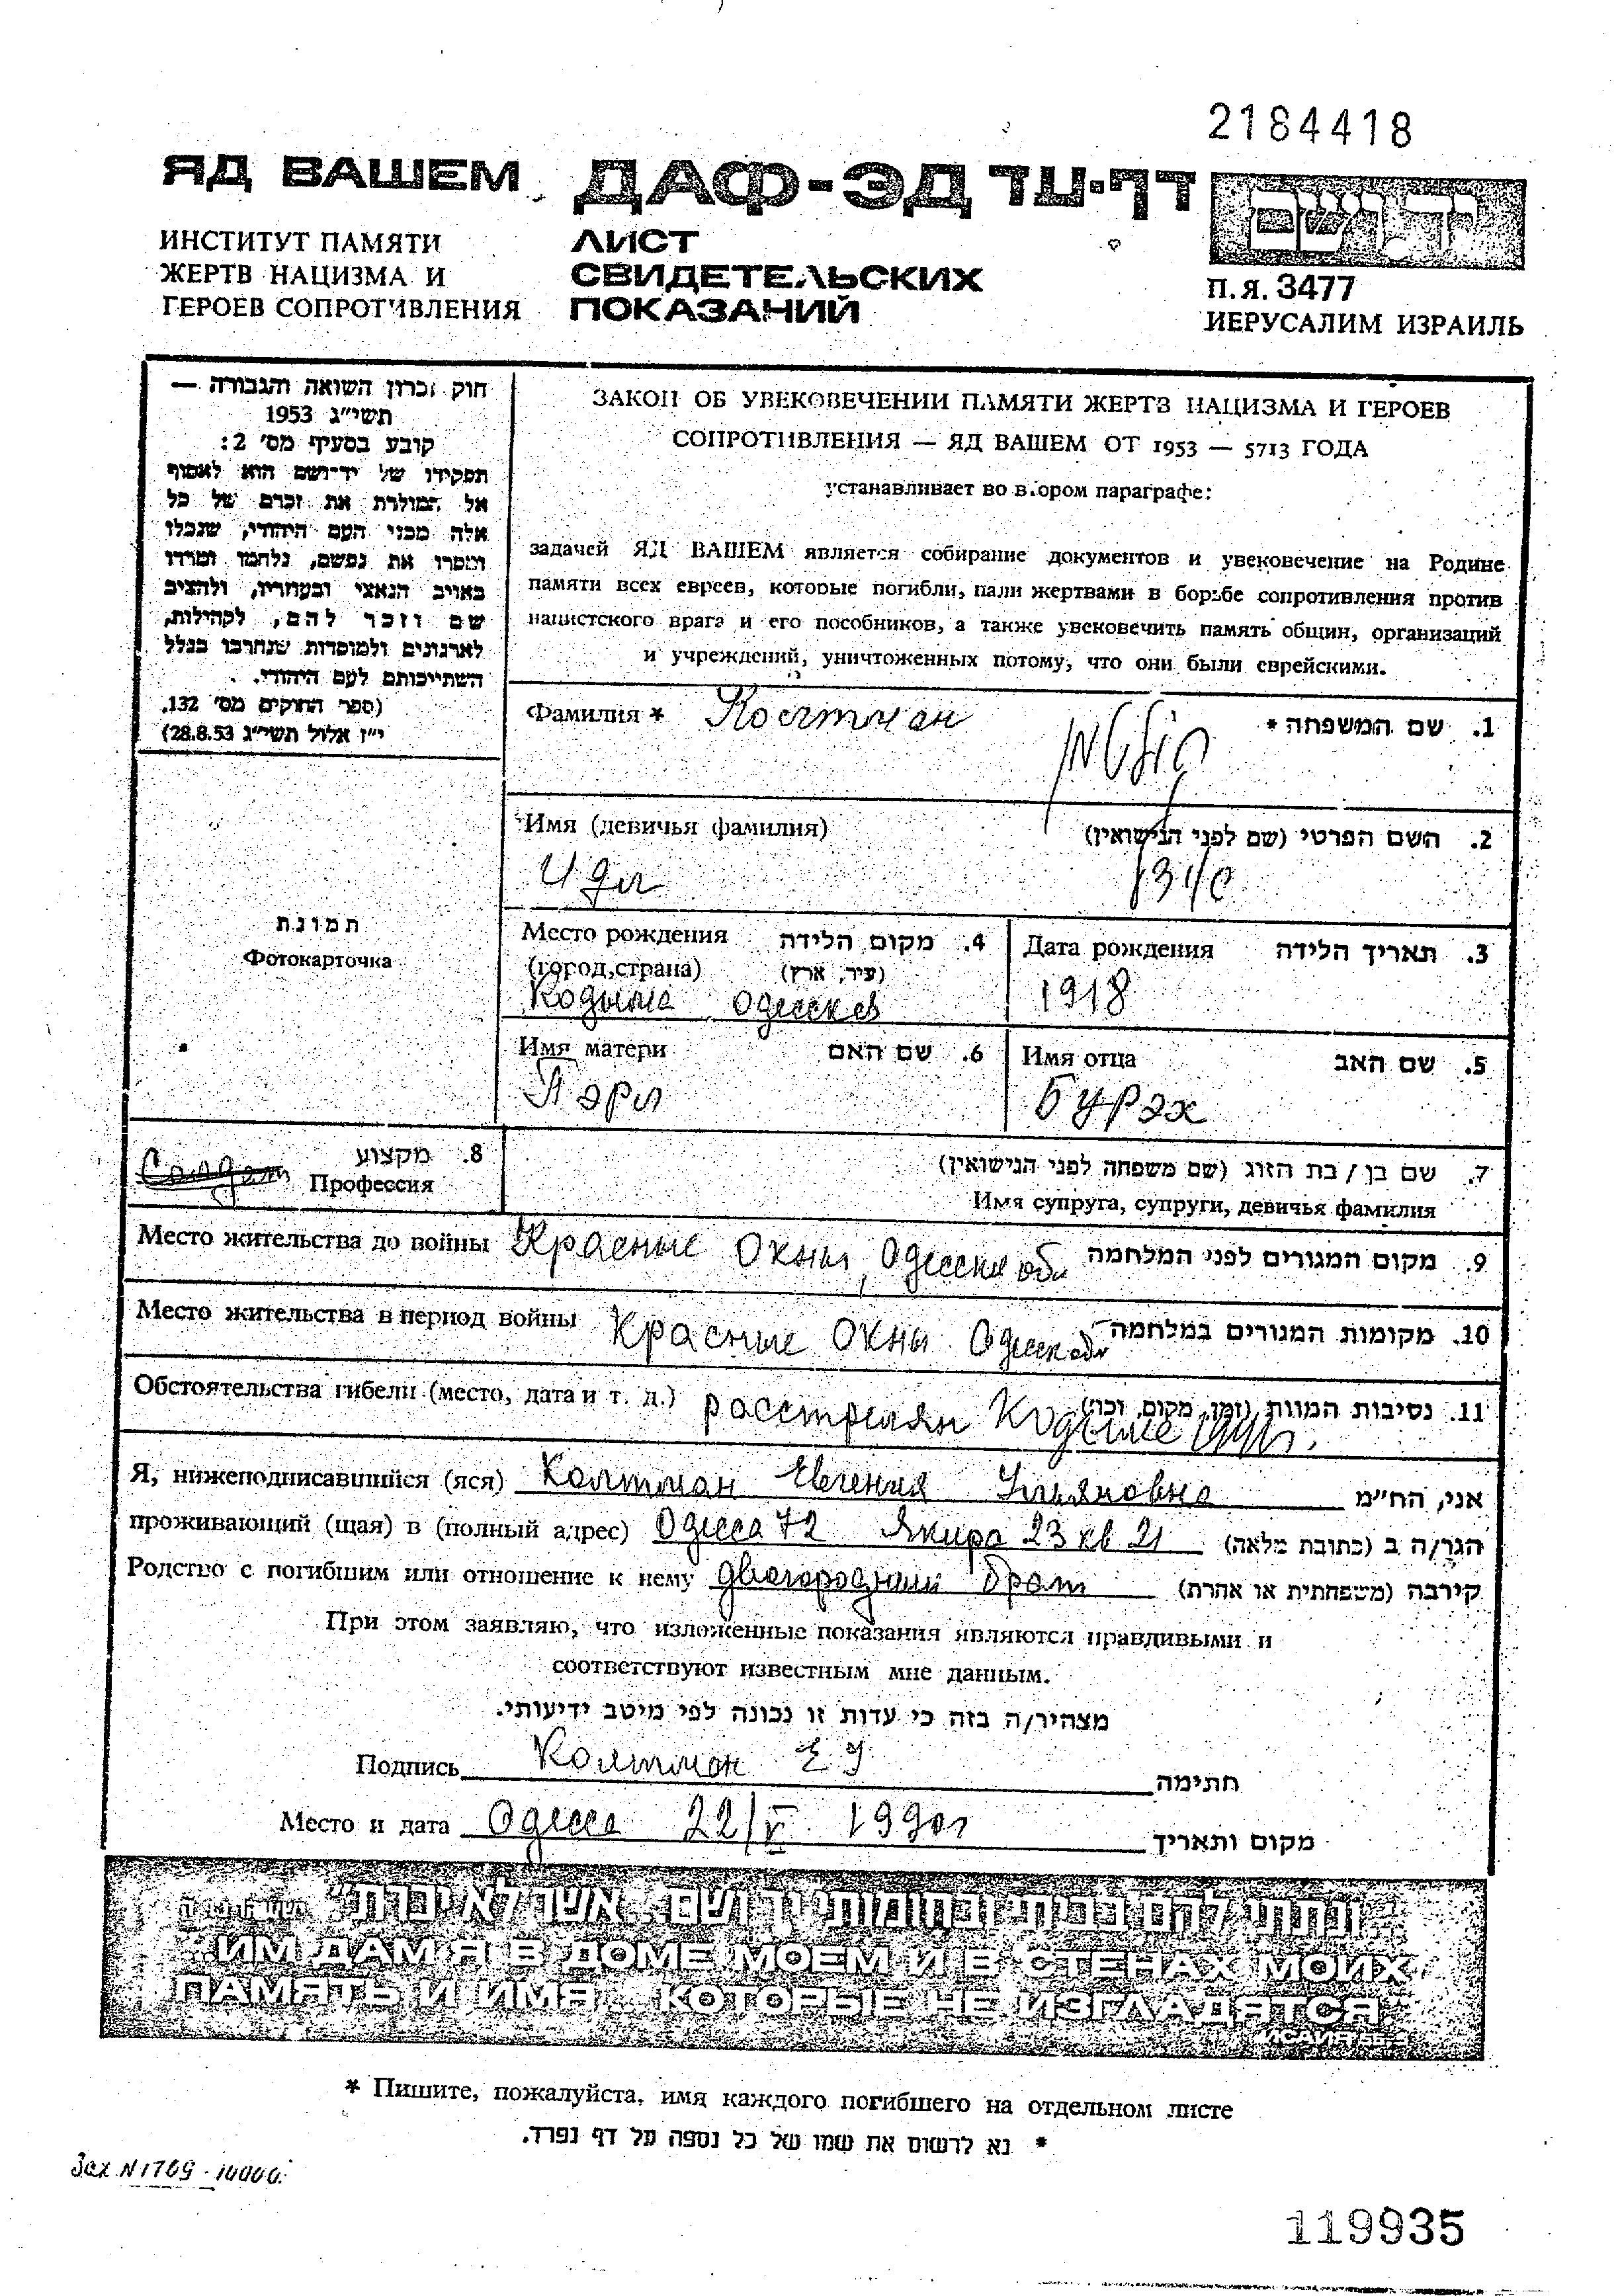 2184418
ЯД ВАШЕМ ДАФ-ЭД דף-עד יד ושם
ИНСТИТУТ ПАМЯТИ
ЖЕРТВ НАЦИЗМА И
ГЕРОЕВ СОПРОТИВЛЕНИЯ
ЛИСТ
СВИДЕТЕЛЬСКИХ
ПОКАЗАНИЙ
П.Я. 3477
ИЕРУСАЛИМ ИЗРАИЛЬ
חוק זכרון השואה והגבורה —
תשי״ג 1953
קובע בסעיף מס׳ 2:
תפקידו של יד־ושם הוא לאסוף
אל המולדת את זכרם של כל
אלה מבני העם היהודי, שנפלו
ומסרו את נפשם, נלחמו ומרדו
באויב הנאצי ובעוזריו, ולהציב
שם וזכר להם, לקהילות,
לארגונים ולמוסדות שנחרבו בגלל
השתייכותם לעם היהודי.
(ספר החוקים מס׳ 132,
י״ז אלול תשי״ג 28.8.53)
ЗАКОН ОБ УВЕКОВЕЧЕНИИ ПАМЯТИ ЖЕРТВ НАЦИЗМА И ГЕРОЕВ
СОПРОТИВЛЕНИЯ — ЯД ВАШЕМ ОТ 1953 — 5713 ГОДА
устанавливает во втором параграфе:
задачей ЯД ВАШЕМ является собирание документов и увековечение на Родине
памяти всех евреев, которые погибли, пали жертвами в борьбе сопротивления против
нацистского врага и его пособников, а также увековечить память общин, организаций
и учреждений, уничтоженных потому, что они были еврейскими.
Фамилия * Колтман 1. שם המשפחה *
Имя (девичья фамилия) 2. השם הפרטי (שם לפני הנישואין)
תמונה
Фотокарточка
Место рождения 4. מקום הלידה
(город, страна) (עיר, ארץ)
Кодыма Одесская
Дата рождения 3. תאריך הלידה
1918
Имя матери 6. שם האם
Пэрл
Имя отца 5. שם האב
Бурэх
Солдат 8. מקצוע
Профессия
7. שם בן / בת הזוג (שם משפחה לפני הנישואין)
Имя супруга, супруги, девичья фамилия
Место жительства до войны Красные Окны, Одесская обл 9. מקום המגורים לפני המלחמה
Место жительства в период войны Красные Окны Одесск обл 10. מקומות המגורים במלחמה
Обстоятельства гибели (место, дата и т. д.) расстрелян Кодыме 1941г. 11. נסיבות המוות (זמן, מקום, וכו׳)
Я, нижеподписавшийся (яся) Колтман Евгения Ульяновна אני, הח״מ
проживающий (щая) в (полный адрес) Одесса 72 Якира 23 кв 21 הגר/ה ב (כתובת מלאה)
Родство с погибшим или отношение к нему двоюродный брат קירבה (משפחתית או אחרת)
При этом заявляю, что изложенные показания являются правдивыми и
соответствуют известным мне данным.
מצהיר/ה בזה כי עדות זו נכונה לפי מיטב ידיעותי.
Подпись Колтман Е У חתימה
Место и дата Одесса 22/V 1990г מקום ותאריך
״ונתתי להם בביתי ובחומותי יד ושם... אשר לא יכרת״
ИМ ДАМ Я В ДОМЕ МОЕМ И В СТЕНАХ МОИХ
ПАМЯТЬ И ИМЯ... КОТОРЫЕ НЕ ИЗГЛАДЯТСЯ
ИСАИЯ
* Пишите, пожалуйста, имя каждого погибшего на отдельном листе
* נא לרשום את שמו של כל נספה על דף נפרד.
Зак N1769 - 10000
119935